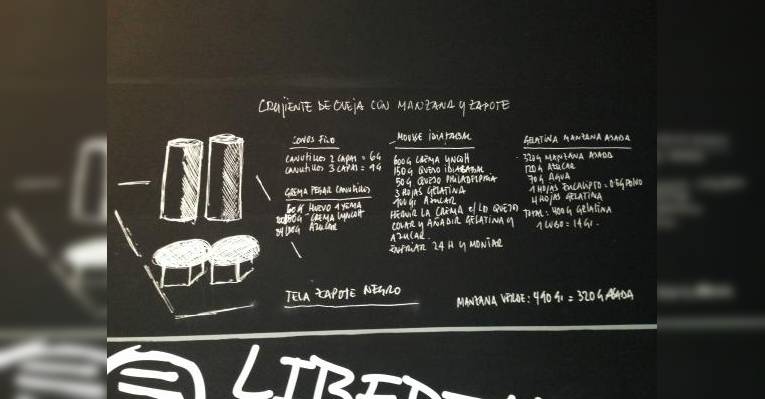 CRUJIENTE DE OVEJA CON MANZANA Y ZAPOTE
CONOS FILO
CANUTILLOS 2 CAPAS = 6G
CANUTILLOS 3 CAPAS = 9G
CREMA PEGAR CANUTILLOS
HUEVO 1 YEMA
CREMA LYNCOTT
AZUCAR
MOUSSE IDIAZABAL
600G CREMA LYNCOTT
150G QUESO IDIAZABAL
50G QUESO PHILADELPHIA
3 HOJAS GELATINA
100 gr AZUCAR
HERVIR LA CREMA C/ LO QUESO
COLAR Y AÑADIR GELATINA Y
AZUCAR
ENFRIAR 24 H Y MONTAR
GELATINA MANZANA ASADA
320G MANZANA ASADA
120G AZUCAR
70G AGUA
1 HOJAS EUCALIPTO = 0.5G POLVO
4 HOJAS GELATINA
TOTAL: 400G GELATINA
1 CUBO = 14 Gr.
TELA ZAPOTE NEGRO
MANZANA VERDE: 490 Gr = 320 G ASADA